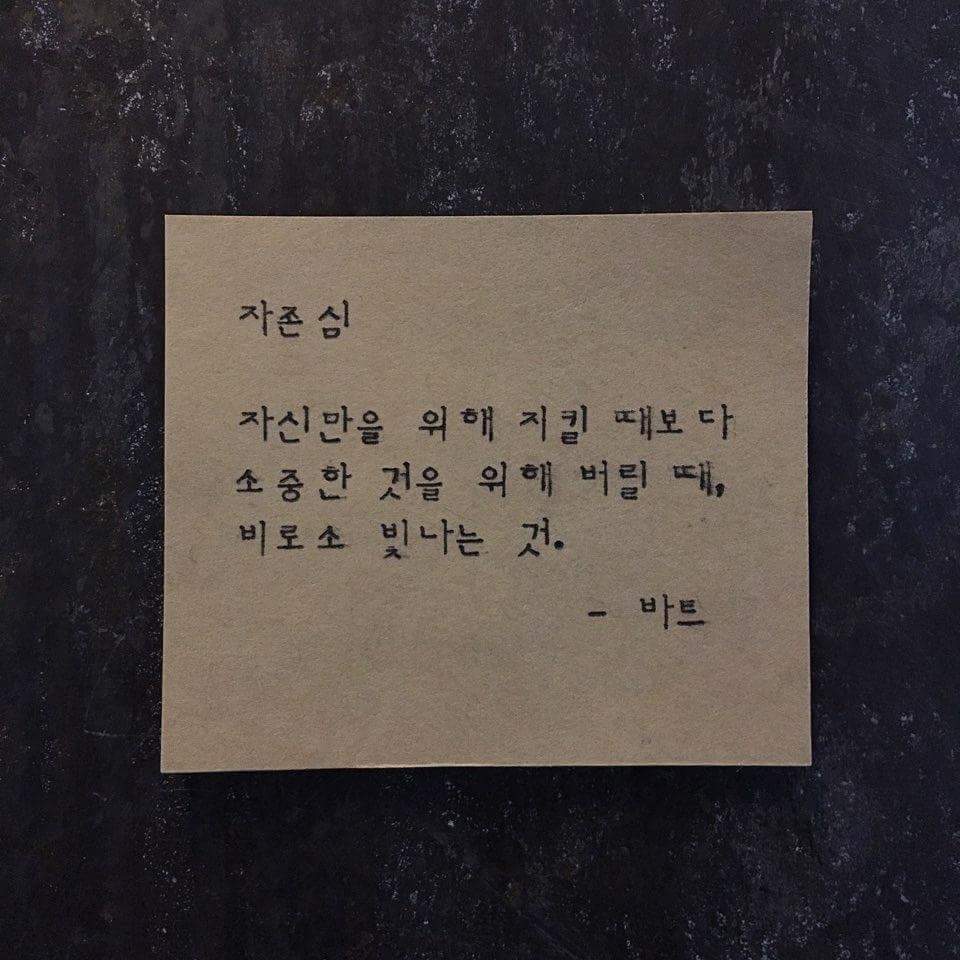 자존심
자신만을 위해 지킬 때보다
소중한 것을 위해 버릴 때,
비로소 빛나는 것.
- 바트